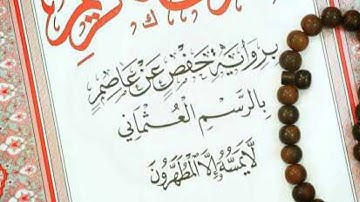 بِرِوَايَةِ حَفْصٍ عَنْ عَاصِمٍ
بِالرَّسْمِ الْعُثْمَانِي
لَّا يَمَسُّهُ إِلَّا الْمُطَهَّرُونَ